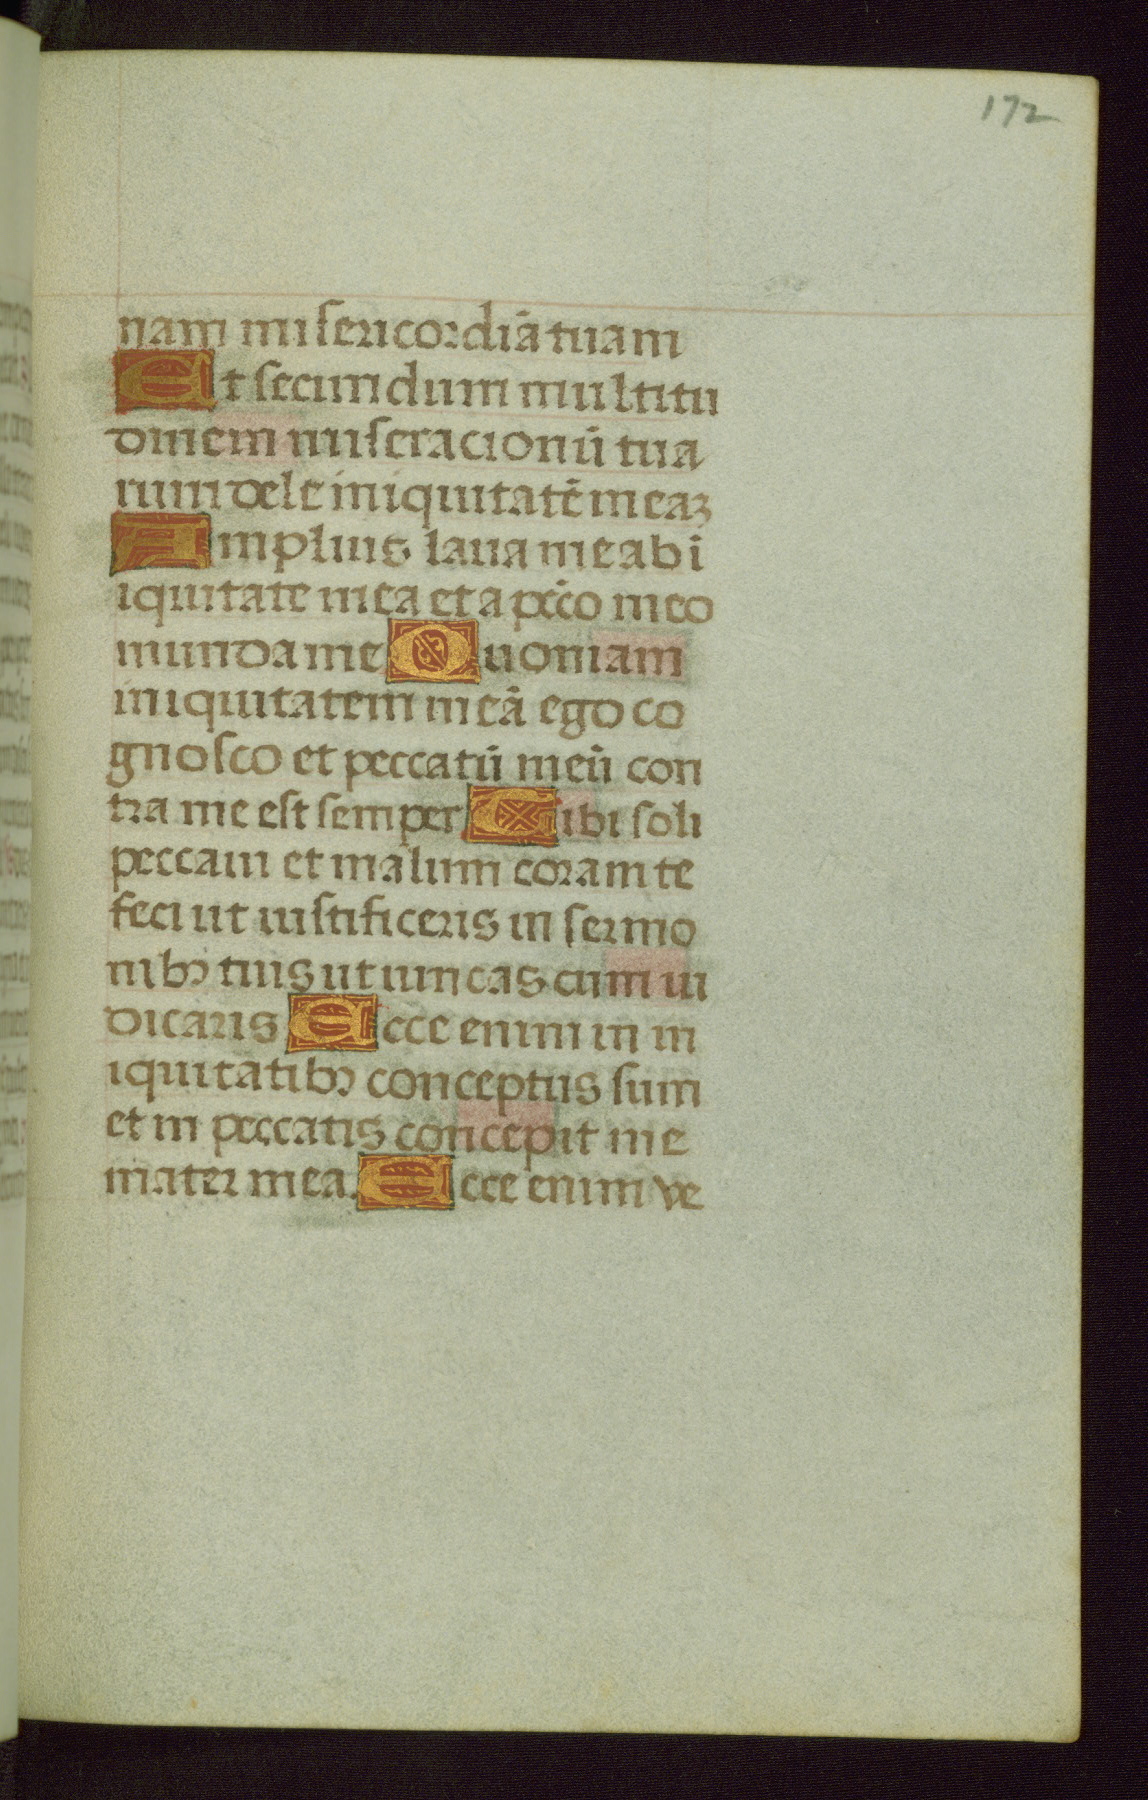 172
nam misericordiā tuam
Et secundum multitu
dinem miseracionū tua
rum dele iniquitatē meaꝫ
Amplius laua me ab ī
iquitate mea et a pc̄co meo
munda me Quoniam
iniquitatem meā ego co
gnosco et peccatū meū con
tra me est semper Tibi soli
peccaui et malum coram te
feci ut iustificeris in sermo
nibꝰ tuis ut uincas cum iu
dicaris Ecce enim in in
iquitatibꝰ conceptus sum
et in peccatis concepit me
mater mea. Ecce enim ve